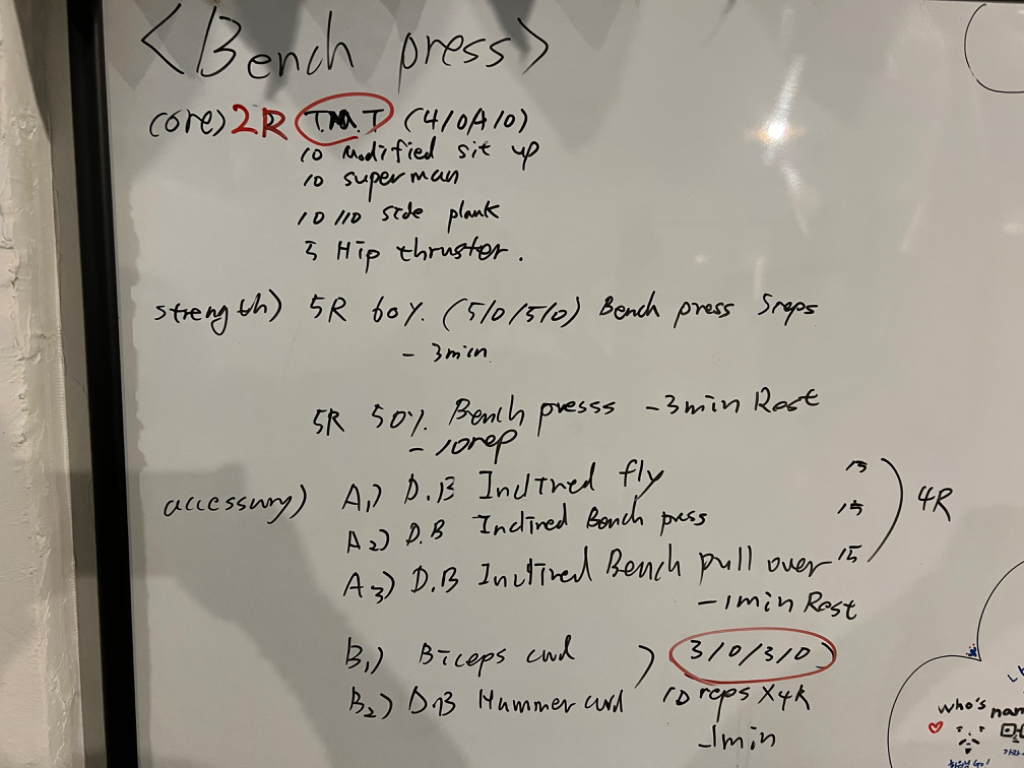 <Bench press>
core) 2R T.M.T (4/0/1/0)
10 Modified sit up
10 superman
10/10 side plank
5 Hip thruster.
strength) 5R 60%. (5/0/5/0) Bench press 5reps
- 3min
5R 50%. Bench presss -3min Rest
- 10rep
accessury) A1) D.B Inclined fly 15
A2) D.B Inclined Bench press 15
A3) D.B Inclined Bench pull over 15
4R
-1min Rest
B1) Biceps curl
B2) D.B Hummer curl
3/0/3/0
10 reps X4R
-1min
who's